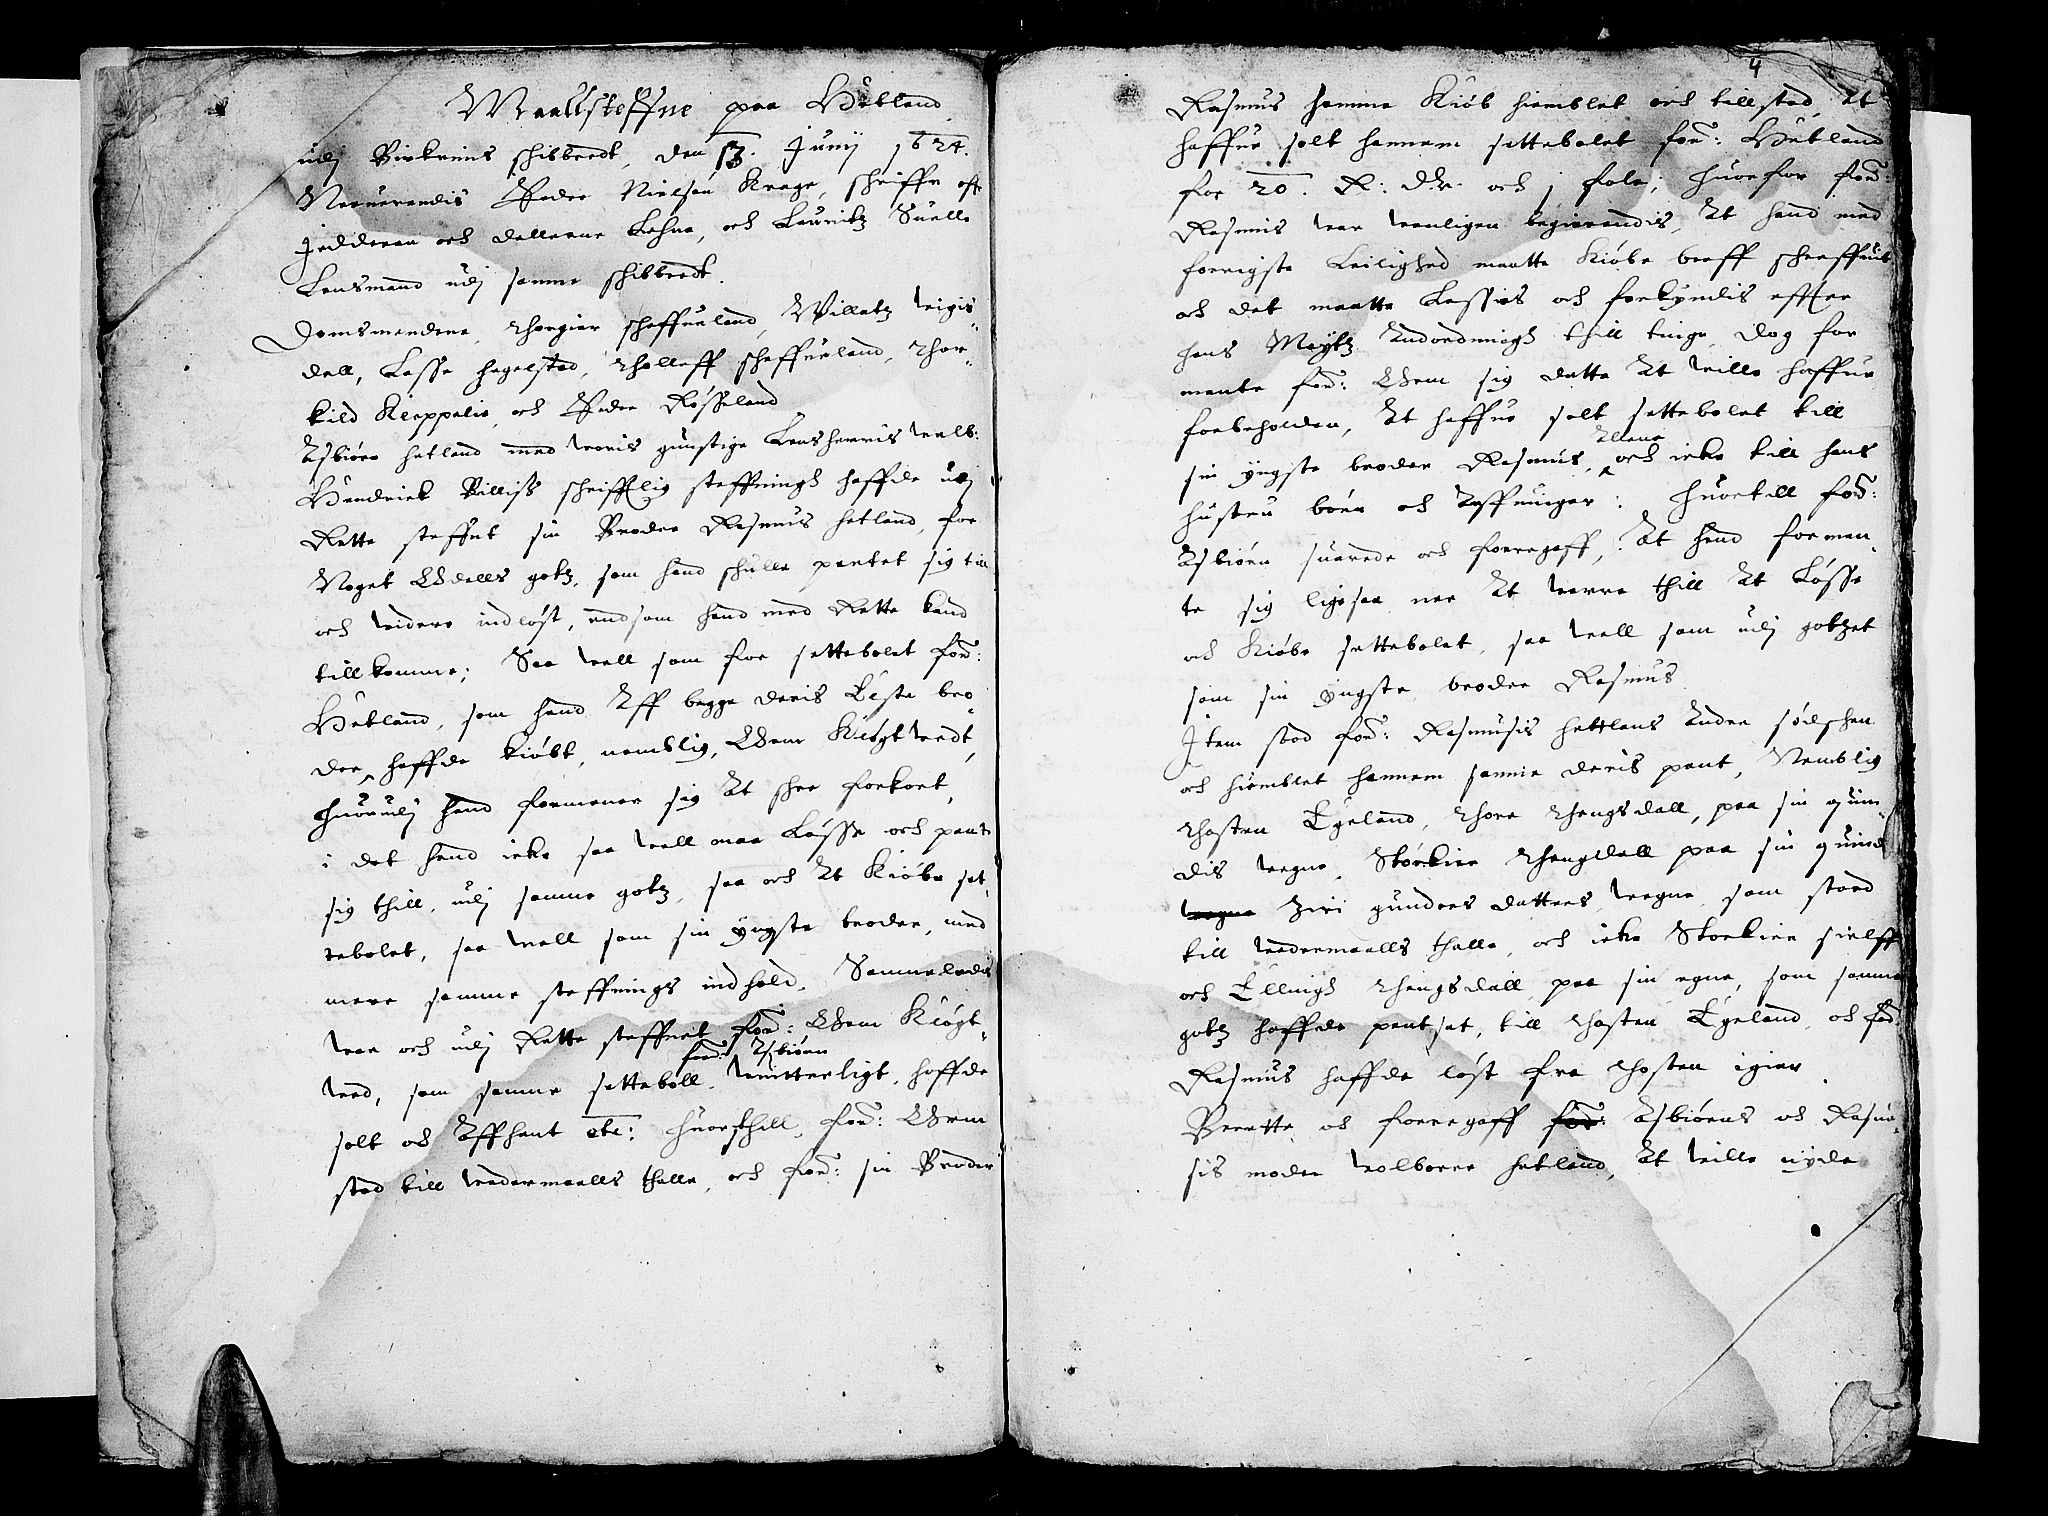 Maallsteffne paa Hetland
udj Birkrims schibbredt, den 13. Junij 1624.
Neruerendis Peder Nielsen Krage, schriffr offr
Jedderen och dallerne Lehne, och Lauritz Suelle
Lensmand udj samme schibbredt.
Domsmendene, Thorgier scheffueland, Willatz Veigis-
dall, Lasse hegelstad, Tholleff scheffueland, Thor-
kild Kleppelie, och Peder Røsseland
Asbiørn hetland med voris gunstige Lensherris velb:
Hendrick Billiss schrifftlig steffningh haffde udj
Rette steffnt sin Broder Rasmus hetland, for
Noget Odells gotz, som hand schulle pantet sig till
och videre indløst, end som hand med Rette kand
tillkomme; Saa vell som for settebolet ford:
Hetland, som hand Aff begge deris Elste bro-
der, haffde kiøbt, nemblig, Orm Kløgtvedt,
huorudj hand formener sig At schee forkort,
i det hand icke saa vell maa Løsse och pante
sig thill, udj samme gotz, saa och At Kiøbe set-
tebolet, saa vell som sin yngste broder, med
mere samme steffnings indhold. Sammeledis
var och udj Rette steffnet ford: Orm Kløgt-
ford: Asbiørn
ved, som samme setteboll, Uvitterligt, haffde
solt och Affhent etc: huorthill, ford: Orm
stod till vedermaalls thalle, och ford: sin Broder
4
Rasmus samme Kiøb hiemblet och tillstod, At
haffue solt hannem settebolet ford: Hetland
for 20. R: dlr. och j fole; huorfor ford:
Rasmus var venligen begierendis, At hand med
forrigste Leilighed maatte Kiøbe breff schreffuit
och det maatte Lessis och forkyndis effter
hans Maytz Andordningh thill tinge, dog for
mente ford: Orm sig dette At ville haffue
forbeholden, At haffue solt settebolet till
Allene
sin yngste broder Rasmus, och icke till hans
hustru børn och Arffuinger: huortill ford:
Asbiørn suarede och foregaff, At hand formen-
te sig ligesaa ner At verre thill At Løsse
och Kiøbe settebolet, saa vell som udj gotzet
som sin yngste broder Rasmus
Item stod ford: Rasmusis hettlens Andre sødschen
och hiemblet hannem samme deris pant, Nemblig
Thosten Egeland, Thore Thengsdall, paa sin quin-
dis vegne, Storkier Thengsdall paa sin quind
vegne Ziri gunders datters vegne, som stoed
till vedermaalls thalle, och icke Storkier sielff
och Ellingh Thengsdall paa sin egne, som samme
gotz haffde pantset, till Thosten Egeland, och ford
Rasmus haffde løst fra Thosten igien.
Berette och foregaff ford: Asbiørns och Rasmu-
sis moder volborre hetland, At ville nyde